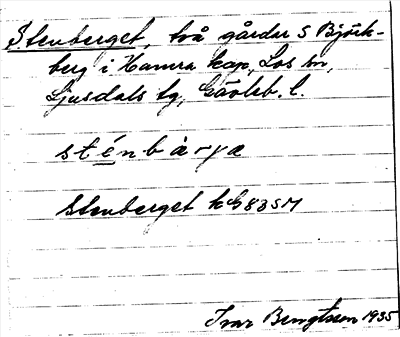 Stenberget, två gårdar S Björk-
berg i Hamra kap, Los sn,
Ljusdals tg, Gävleb. l.
sténbàrja
Stenberget kG835M
Ivar Bengtsson 1935